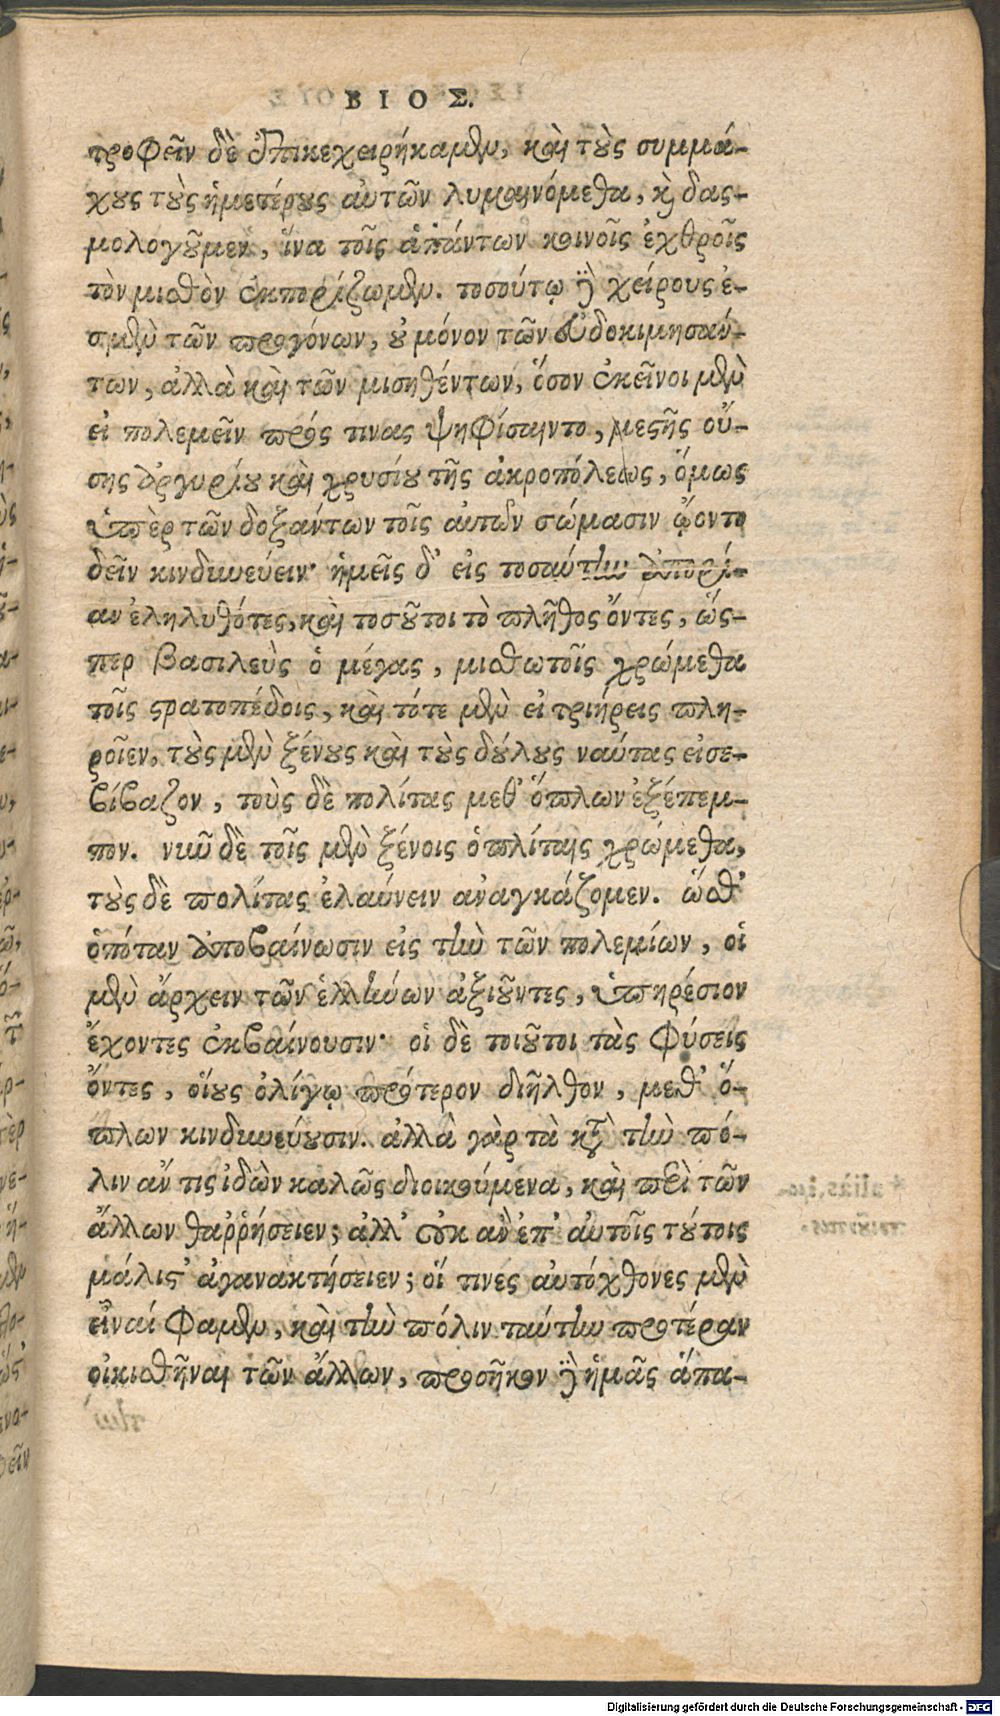 ΒΙΟΣ.
τροφεῖν δὲ ἐπικεχειρήκαμεν, καὶ τοὺς συμμά-
χους τοὺς ἡμετέρους αὐτῶν λυμαινόμεθα, καὶ δασ-
μολογοῦμεν, ἵνα τοῖς ἁπάντων κοινοῖς ἐχθροῖς
τὸν μισθὸν ἐκπορίζωμεν. τοσούτῳ δὲ χείρους ἐ-
σμὲν τῶν προγόνων, οὐ μόνον τῶν εὐδοκιμησάν-
των, ἀλλὰ καὶ τῶν μισηθέντων, ὅσον ἐκεῖνοι μὲν
εἰ πολεμεῖν πρός τινας ψηφίσαιντο, μεστῆς οὔ-
σης ἀργυρίου καὶ χρυσίου τῆς ἀκροπόλεως, ὅμως
ὑπὲρ τῶν δοξάντων τοῖς αὑτῶν σώμασιν ᾤοντο
δεῖν κινδυνεύειν· ἡμεῖς δ' εἰς τοσαύτην ἀπορί-
αν ἐληλυθότες, καὶ τοσοῦτοι τὸ πλῆθος ὄντες, ὥσ-
περ βασιλεὺς ὁ μέγας, μισθωτοῖς χρώμεθα
τοῖς στρατοπέδοις, καὶ τότε μὲν εἰ τριήρεις πλη-
ροῖεν, τοὺς μὲν ξένους καὶ τοὺς δούλους ναύτας εἰσε-
βίβαζον, τοὺς δὲ πολίτας μεθ' ὅπλων ἐξέπεμ-
πον. νῦν δὲ τοῖς μὲν ξένοις ὁπλίταις χρώμεθα,
τοὺς δὲ πολίτας ἐλαύνειν ἀναγκάζομεν. ὥσθ'
ὁπόταν ἀποβαίνωσιν εἰς τὴν τῶν πολεμίων, οἱ
μὲν ἄρχειν τῶν ἑλλήνων ἀξιοῦντες, ὑπηρέσιον
ἔχοντες ἐκβαίνουσιν· οἱ δὲ τοιοῦτοι τὰς φύσεις
ὄντες, οἵους ὀλίγῳ πρότερον διῆλθον, μεθ' ὅ-
πλων κινδυνεύουσιν. ἀλλὰ γὰρ τὰ κατὰ τὴν πό-
λιν ἄν τις ἰδὼν καλῶς διοικούμενα, καὶ περὶ τῶν
ἄλλων θαῤῥήσειεν; ἀλλ' οὐκ ἂν ἐπ' αὐτοῖς τούτοις
μάλιστ' ἀγανακτήσειεν; οἵ τινες αὐτόχθονες μὲν
εἶναί φαμεν, καὶ τὴν πόλιν ταύτην προτέραν
οἰκισθῆναι τῶν ἄλλων, προσῆκον δὲ ἡμᾶς ἅπα-
Digitalisierung gefördert durch die Deutsche Forschungsgemeinschaft - DFG